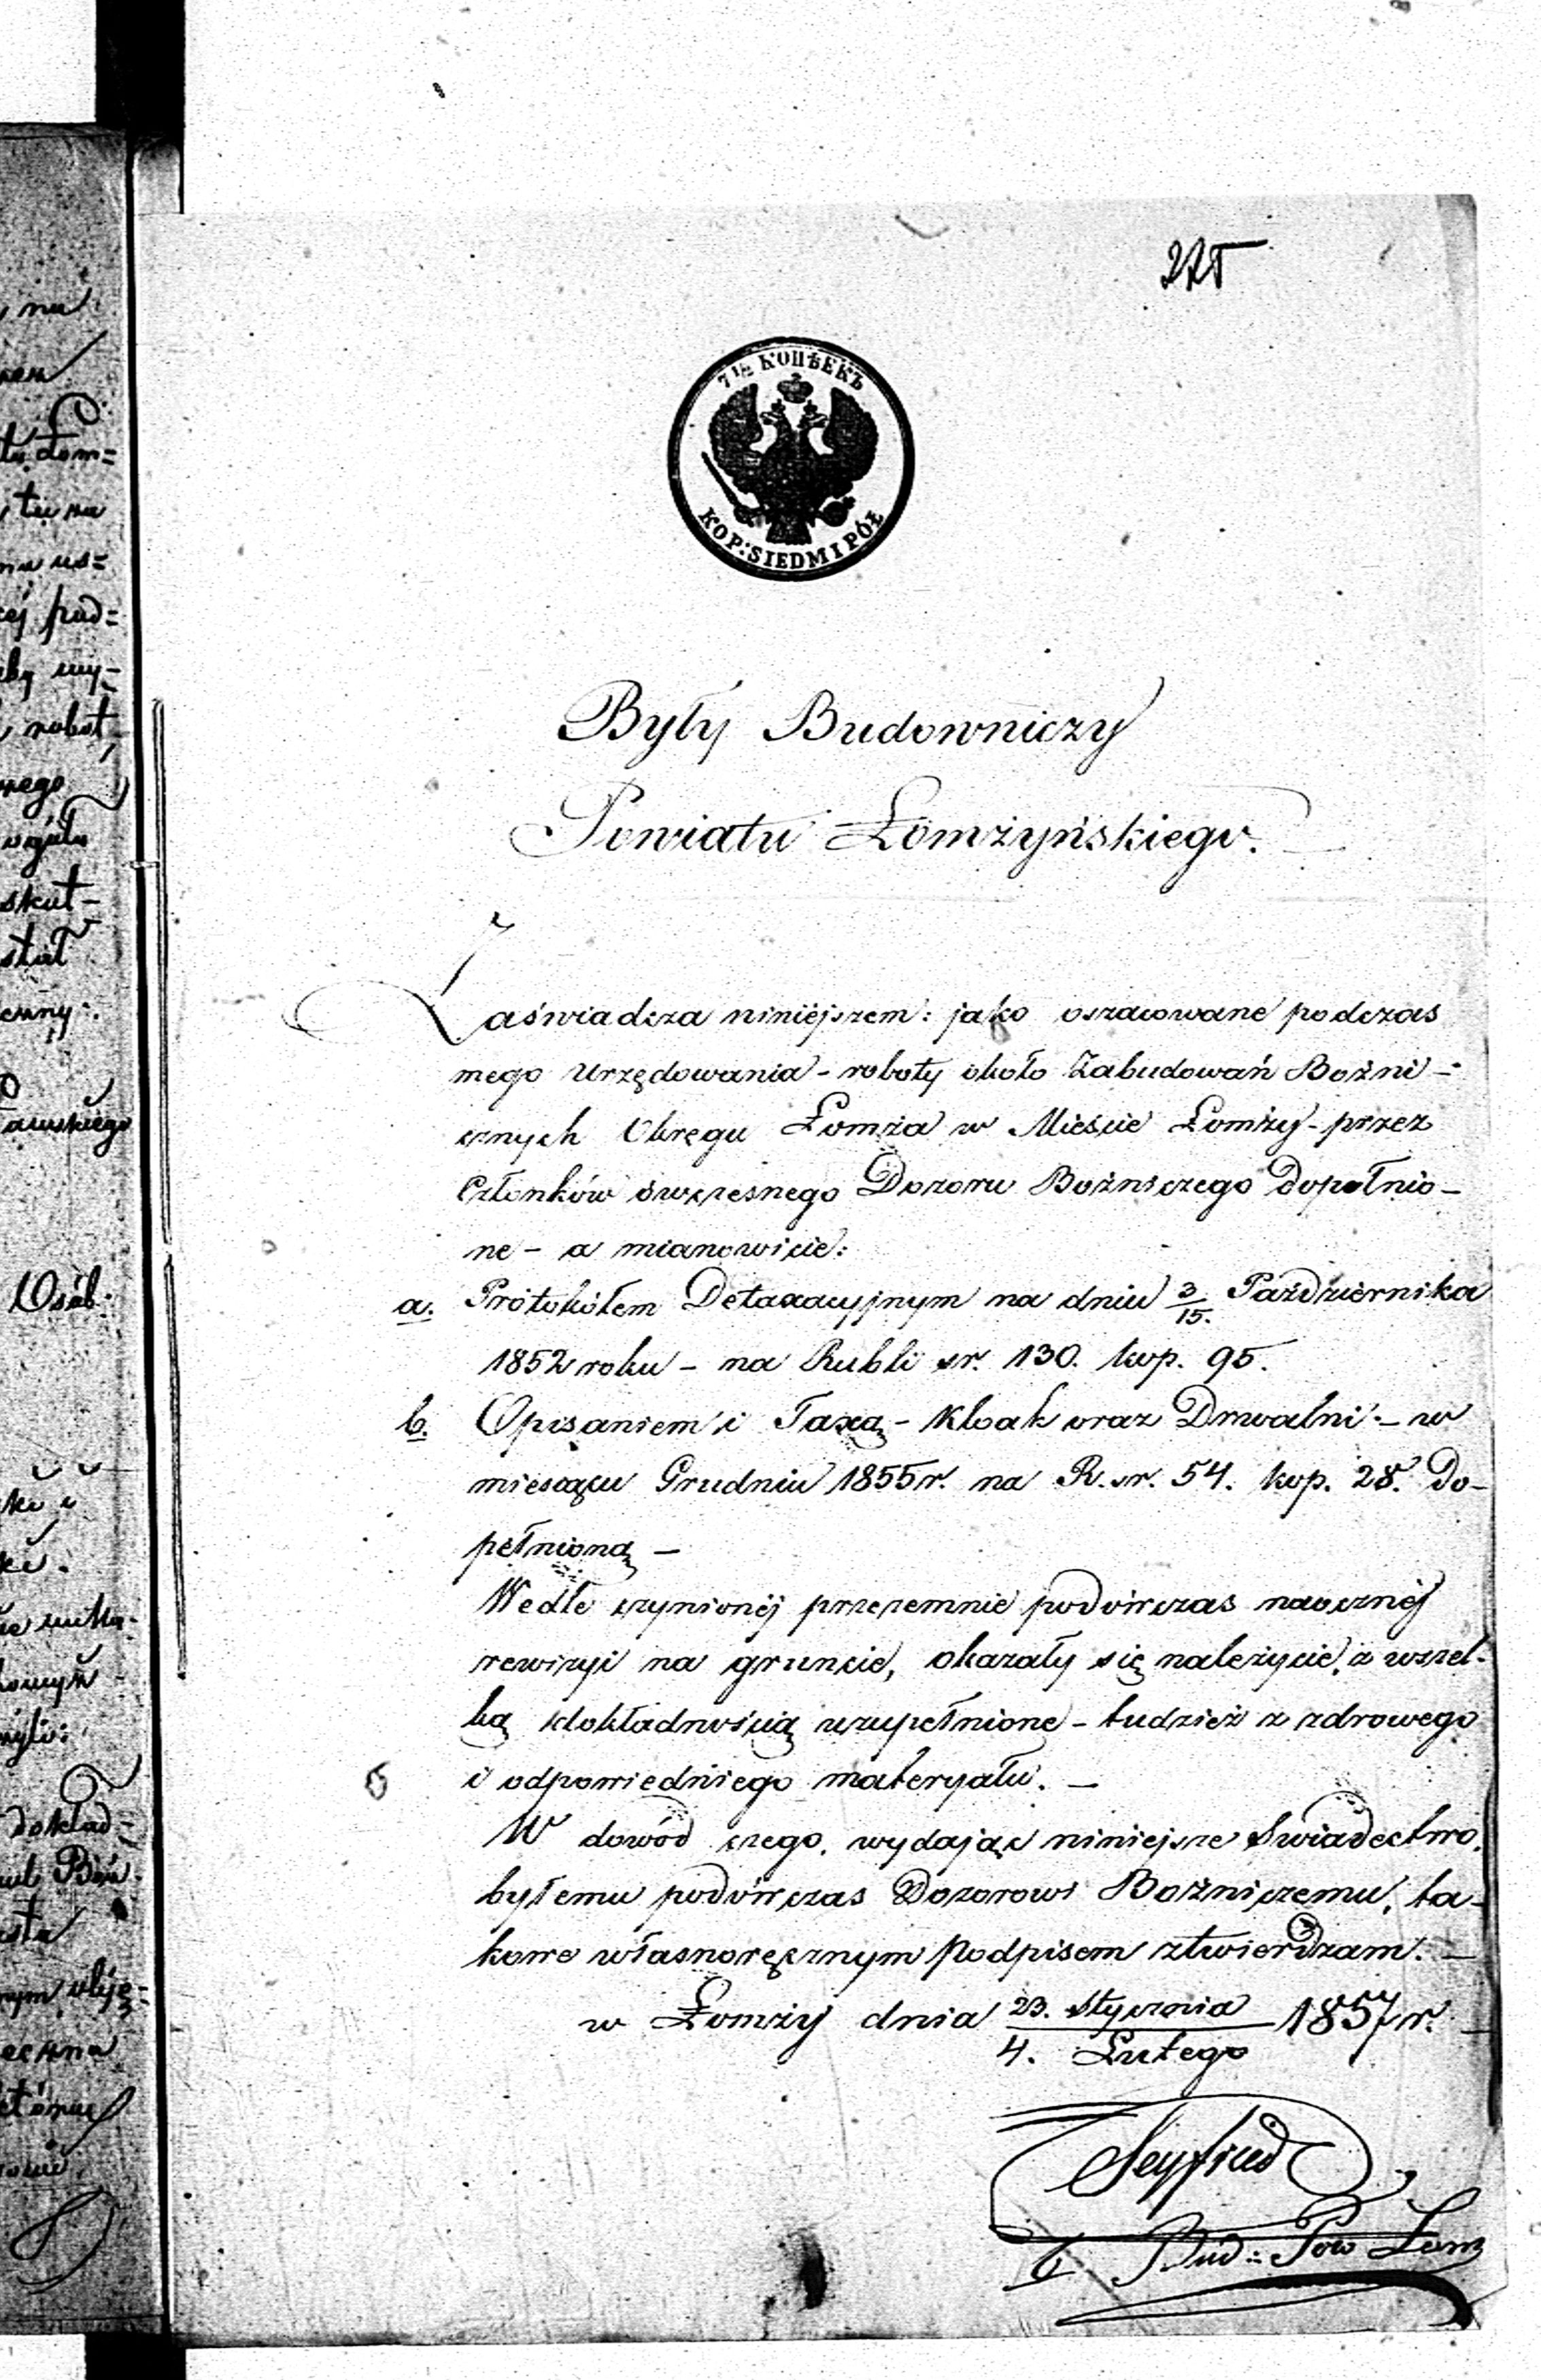 275
7 1/2 КОПѢЕКЪ
KOP: SIEDM I PÓŁ
Były Budowniczy
Powiatu Łomżyńskiego.
Zaświadcza niniéjszem: jako oszacowane podczas
mego Urzędowania - roboty około Zabudowań Bożni-
cznych Okręgu Łomża w Mieście Łomży - przez
Członków ówczesnego Dozoru Bożniczego Dopełnio-
ne - a mianowicie:
a. Protokółem Detaxacyjnym na dniu 3/15. Października
1852 roku - na Rubli sr. 130. kop. 95.
b. Opisaniem i Taxą - Kloak oraz Drwalni - w
miesiącu Grudniu 1855 r. na R. sr. 54. kop. 28. Do-
pełnioną -
Wedle czynionéj przezemnie podówczas naocznéj
rewizyi na gruncie, okazały się należycie, z wszel-
ką dokładnością uzupełnione - tudzież z zdrowego
i odpowiedniego materyału. -
W dowód czego, wydając niniejsze Swiadectwo,
byłemu podówczas Dozorowi Bożniczemu, ta-
kowe własnoręcznym Podpisem ztwierdzam. -
w Łomży dnia 23. Stycznia / 4. Lutego 1857 r.
Seyfried
b. Bud: Pow Łom
na
Łom=
tu na
pod=
wy=
robot
ogółu
skut-
stał
Osób.
dokład-